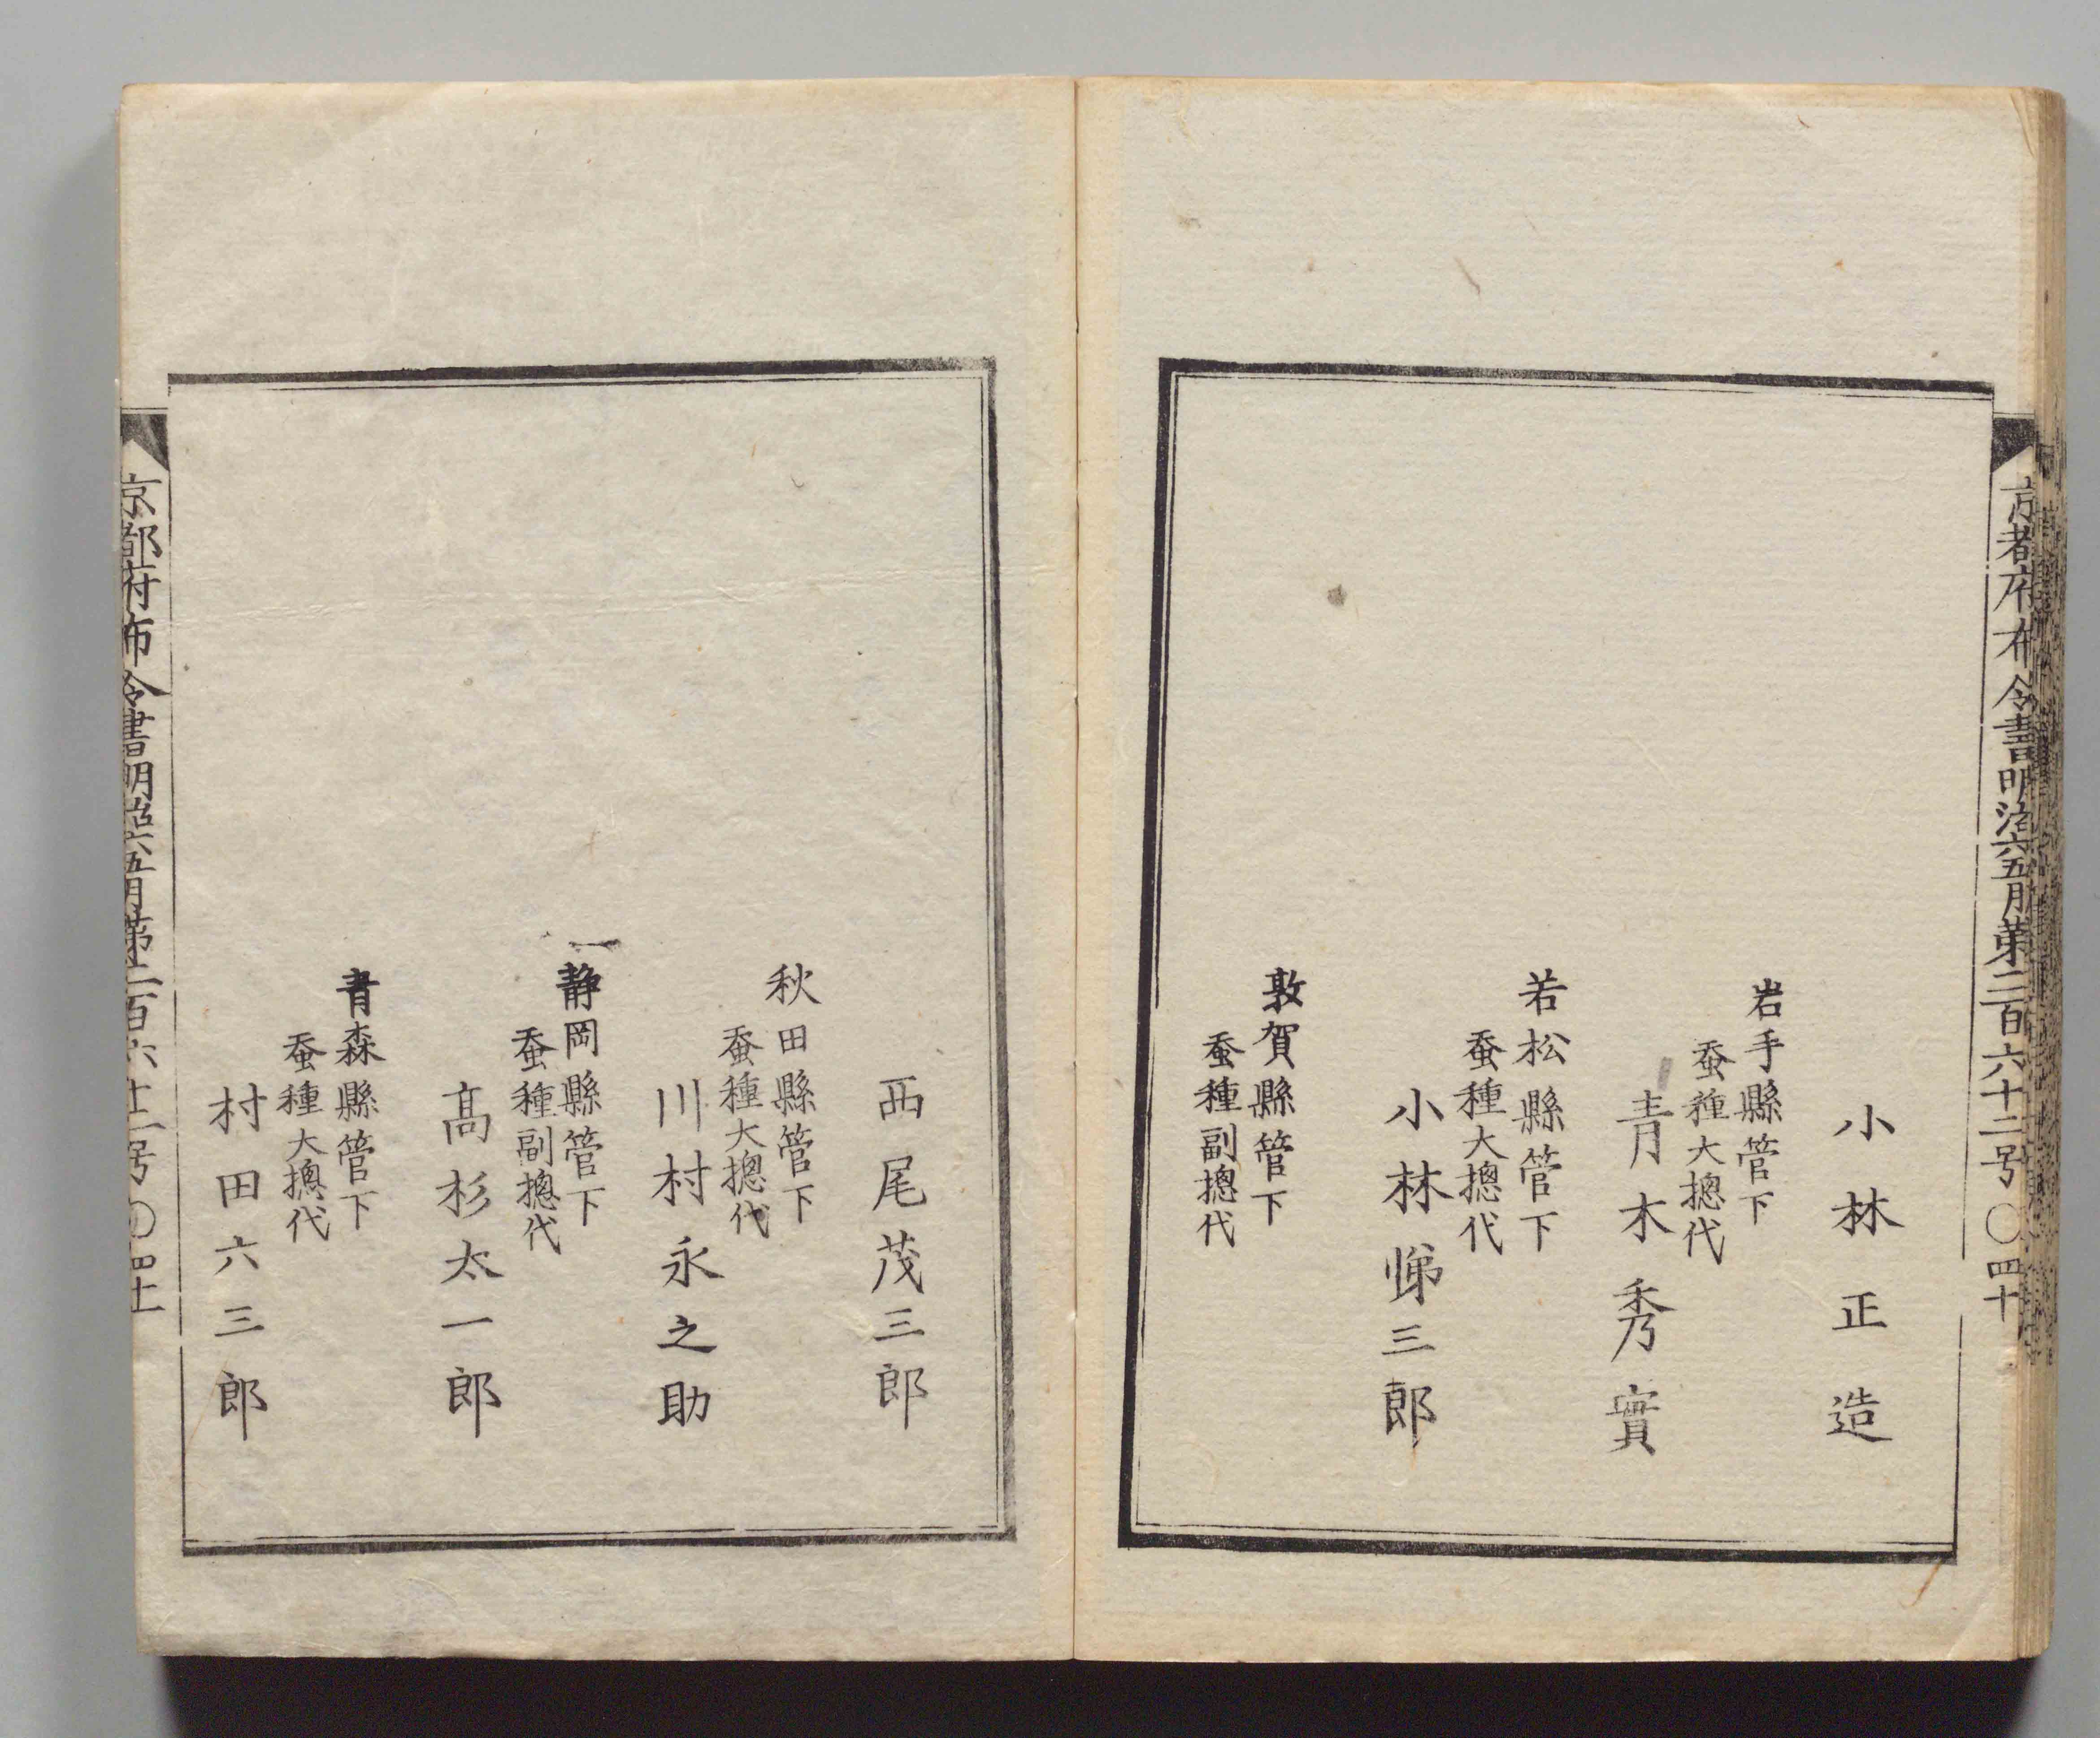 京都府布令書明治六五月第二百六十二号〇四十
小林正造
岩手縣管下
蚕種大摠代
青木秀實
若松縣管下
蚕種大摠代
小林悌三郎
敦賀縣管下
蚕種副摠代
西尾茂三郎
秋田縣管下
蚕種大摠代
川村永之助
静岡縣管下
蚕種副摠代
髙杉太一郎
青森縣管下
蚕種大摠代
村田六三郎
京都府布令書明治六五月第二百六十二号〇四十